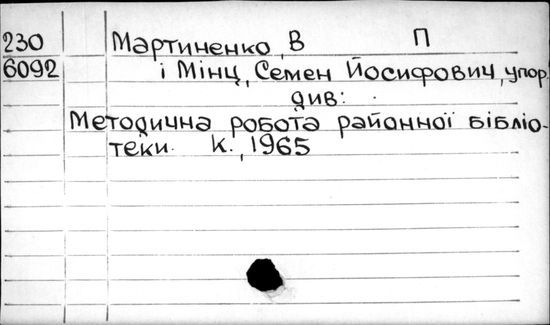 230 Мартиненко, В П
6092 і Мінц, Семен Йосифович, упор.
див:
Методична робота районної бібліо-
теки. К., 1965